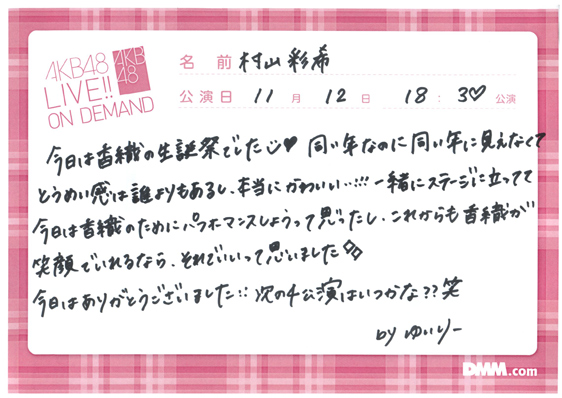 AKB48
LIVE!!
ON DEMAND
AKB
48
名前 村山彩希
公演日 11月12日 18:30♡公演
今日は香織の生誕祭でした♡ 同い年なのに同い年に見えなくて
とうめい感は誰よりもあるし、本当にかわいい…!!! 一緒にステージに立ってて
今日は香織のためにパフォーマンスしようって思ったし、これからも香織が
笑顔でいれるなら、それでいいって思いました
今日はありがとうございました!! 次の4公演はいつかな??笑
by ゆいりー
DMM.com